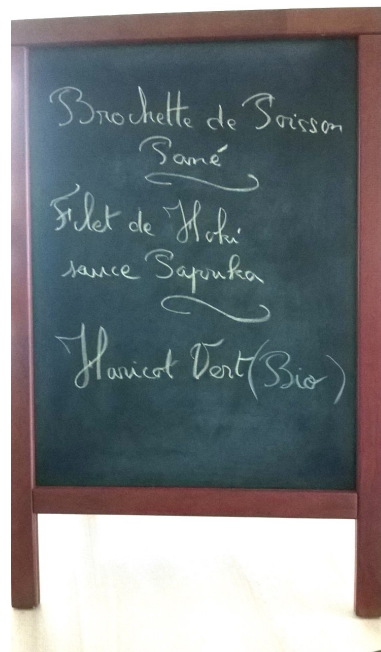 Brochette de Poisson
Pané
Filet de Hoki
sauce Paprika
Haricot Vert (Bio)